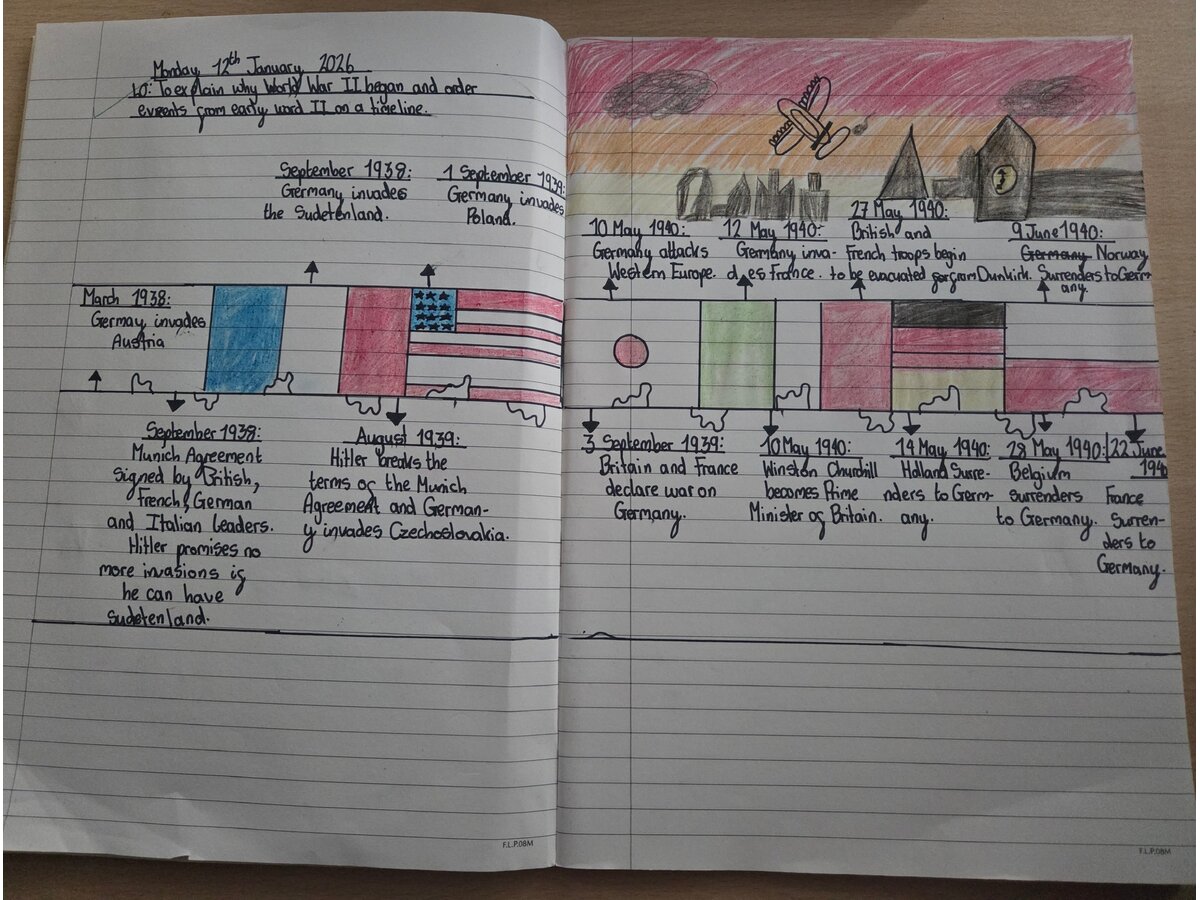 Monday 12th January 2026
LO: To explain why World War II began and order
events from early word II on a timeline.
September 1938:
Germany invades
the Sudetenland.
1 September 1939:
Germany invades
Poland.
March 1938:
Germay invades
Austria
September 1938:
Munich Agreement
signed by British,
French, German
and Italian leaders.
Hitler promises no
more invasions if
he can have
Sudetenland.
August 1939:
Hitler breaks the
terms of the Munich
Agreement and German-
y invades Czechoslovakia.
F.L.P.08M
10 May 1940:
Germany attacks
Western Europe.
12 May 1940:
Germany inva-
des France.
27 May 1940:
British and
French troops begin
to be evacuated from Dunkirk.
9 June 1940:
Germany Norway
Surrenders to Germ-
any.
3 September 1939:
Britain and France
declare war on
Germany.
10 May 1940:
Winston Churchill
becomes Prime
Minister of Britain.
14 May 1940:
Holland Surre-
nders to Germ-
any.
28 May 1940:
Belgium
surrenders
to Germany.
22 June
1940
France
Surren-
ders to
Germany.
F.L.P.08M